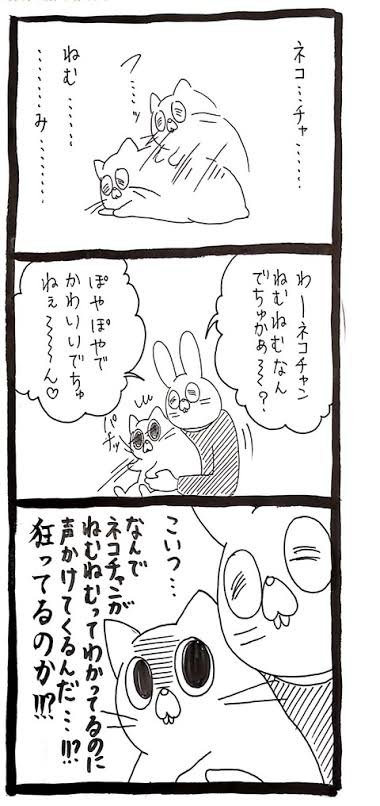 ネコ…チャン……
フ……ッ
ねむ………
……み………
わーネコチャン
ねむねむなん
でちゅかぁ〜〜?
ぽやぽやで
かわいいでちゅ
ねぇ〜〜〜ん♡
パチッ
こいつ…
なんで
ネコチャンが
ねむねむってわかってるのに
声かけてくるんだ…!!?
狂ってるのか!!!?